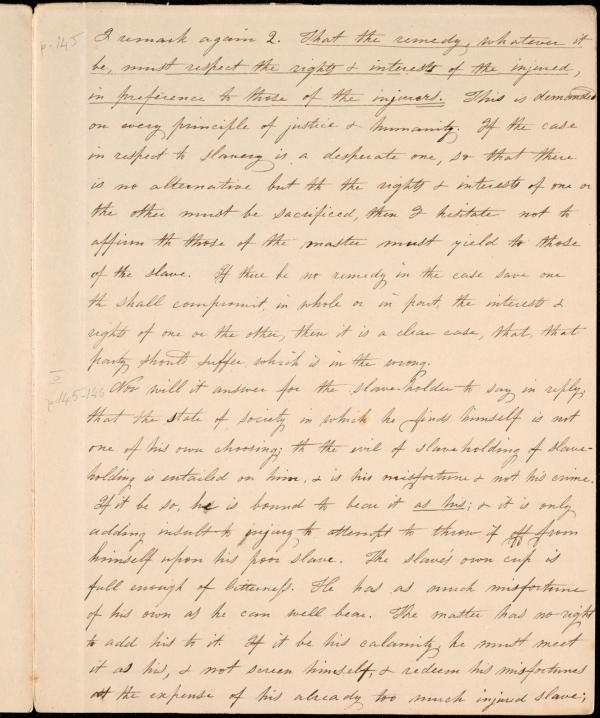 p. 145
I remark again 2. That the remedy, whatever it
be, must respect the rights & interests of the injured,
in preference to those of the injurers. This is demanded
on every principle of justice & humanity. If the case
in respect to slavery is a desperate one, so that there
is no alternative but th the rights & interests of one or
the other must be sacrificed, then I hesitate not to
affirm th those of the master must yield to those
of the slave. If there be no remedy in the case save one
th shall compromit, in whole or in part, the interests &
rights of one or the other, then it is a clear case, that, that
party should suffer, which is in the wrong.
p. 145-146
Nor will it answer for the slave-holder to say in reply;
that the state of society in which he finds himself is not
one of his own choosing; th the evil of slaveholding of slave-
holding is entailed on him, & is his misfortune & not his crime.
If it be so, he is bound to bear it as his; & it is only
adding insult to injury to attempt to throw if off from
himself upon his poor slave. The slave's own cup is
full enough of bitterness. He has as much misfortune
of his own as he can well bear. The master has no right
to add his to it. If it be his calamity, he must meet
it as his, & not screen himself, & redeem his misfortunes
at the expense of his already too much injured slave;